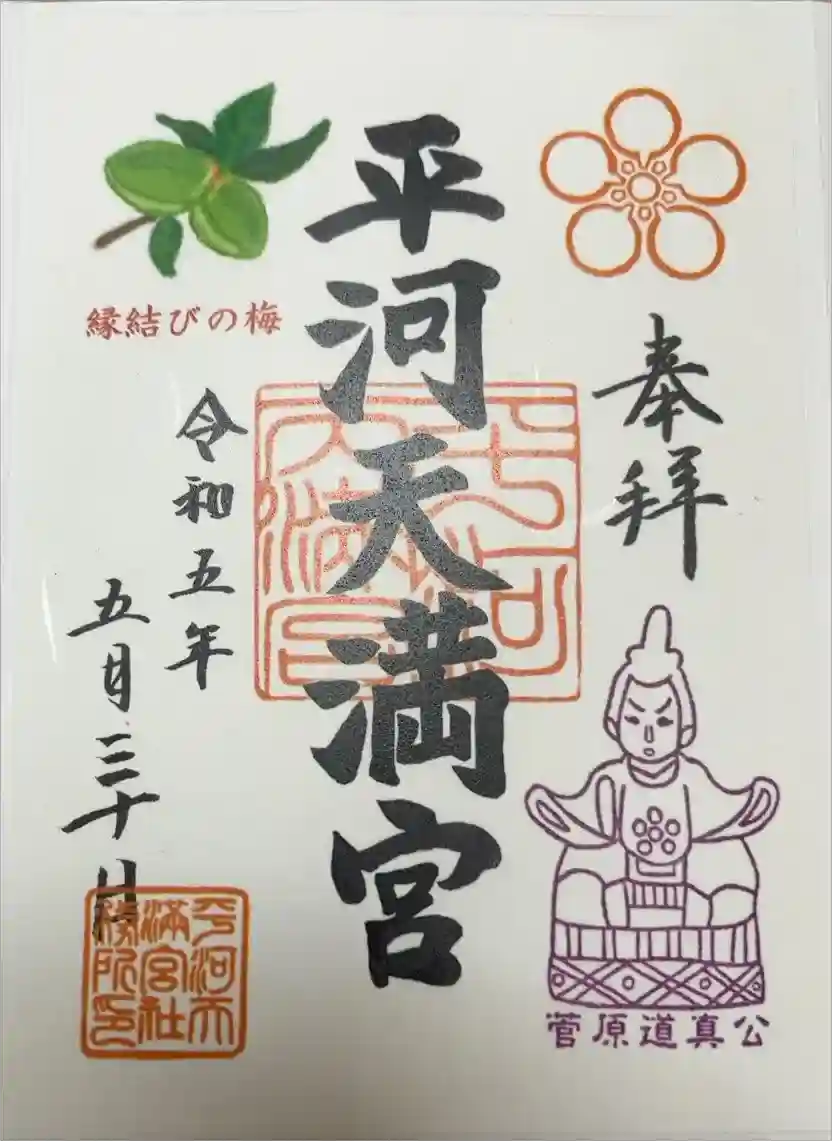 奉拝
平河天満宮
縁結びの梅
令和五年
五月三十日
菅原道真公
平河天
満宮社
務所印
平河
天満宮